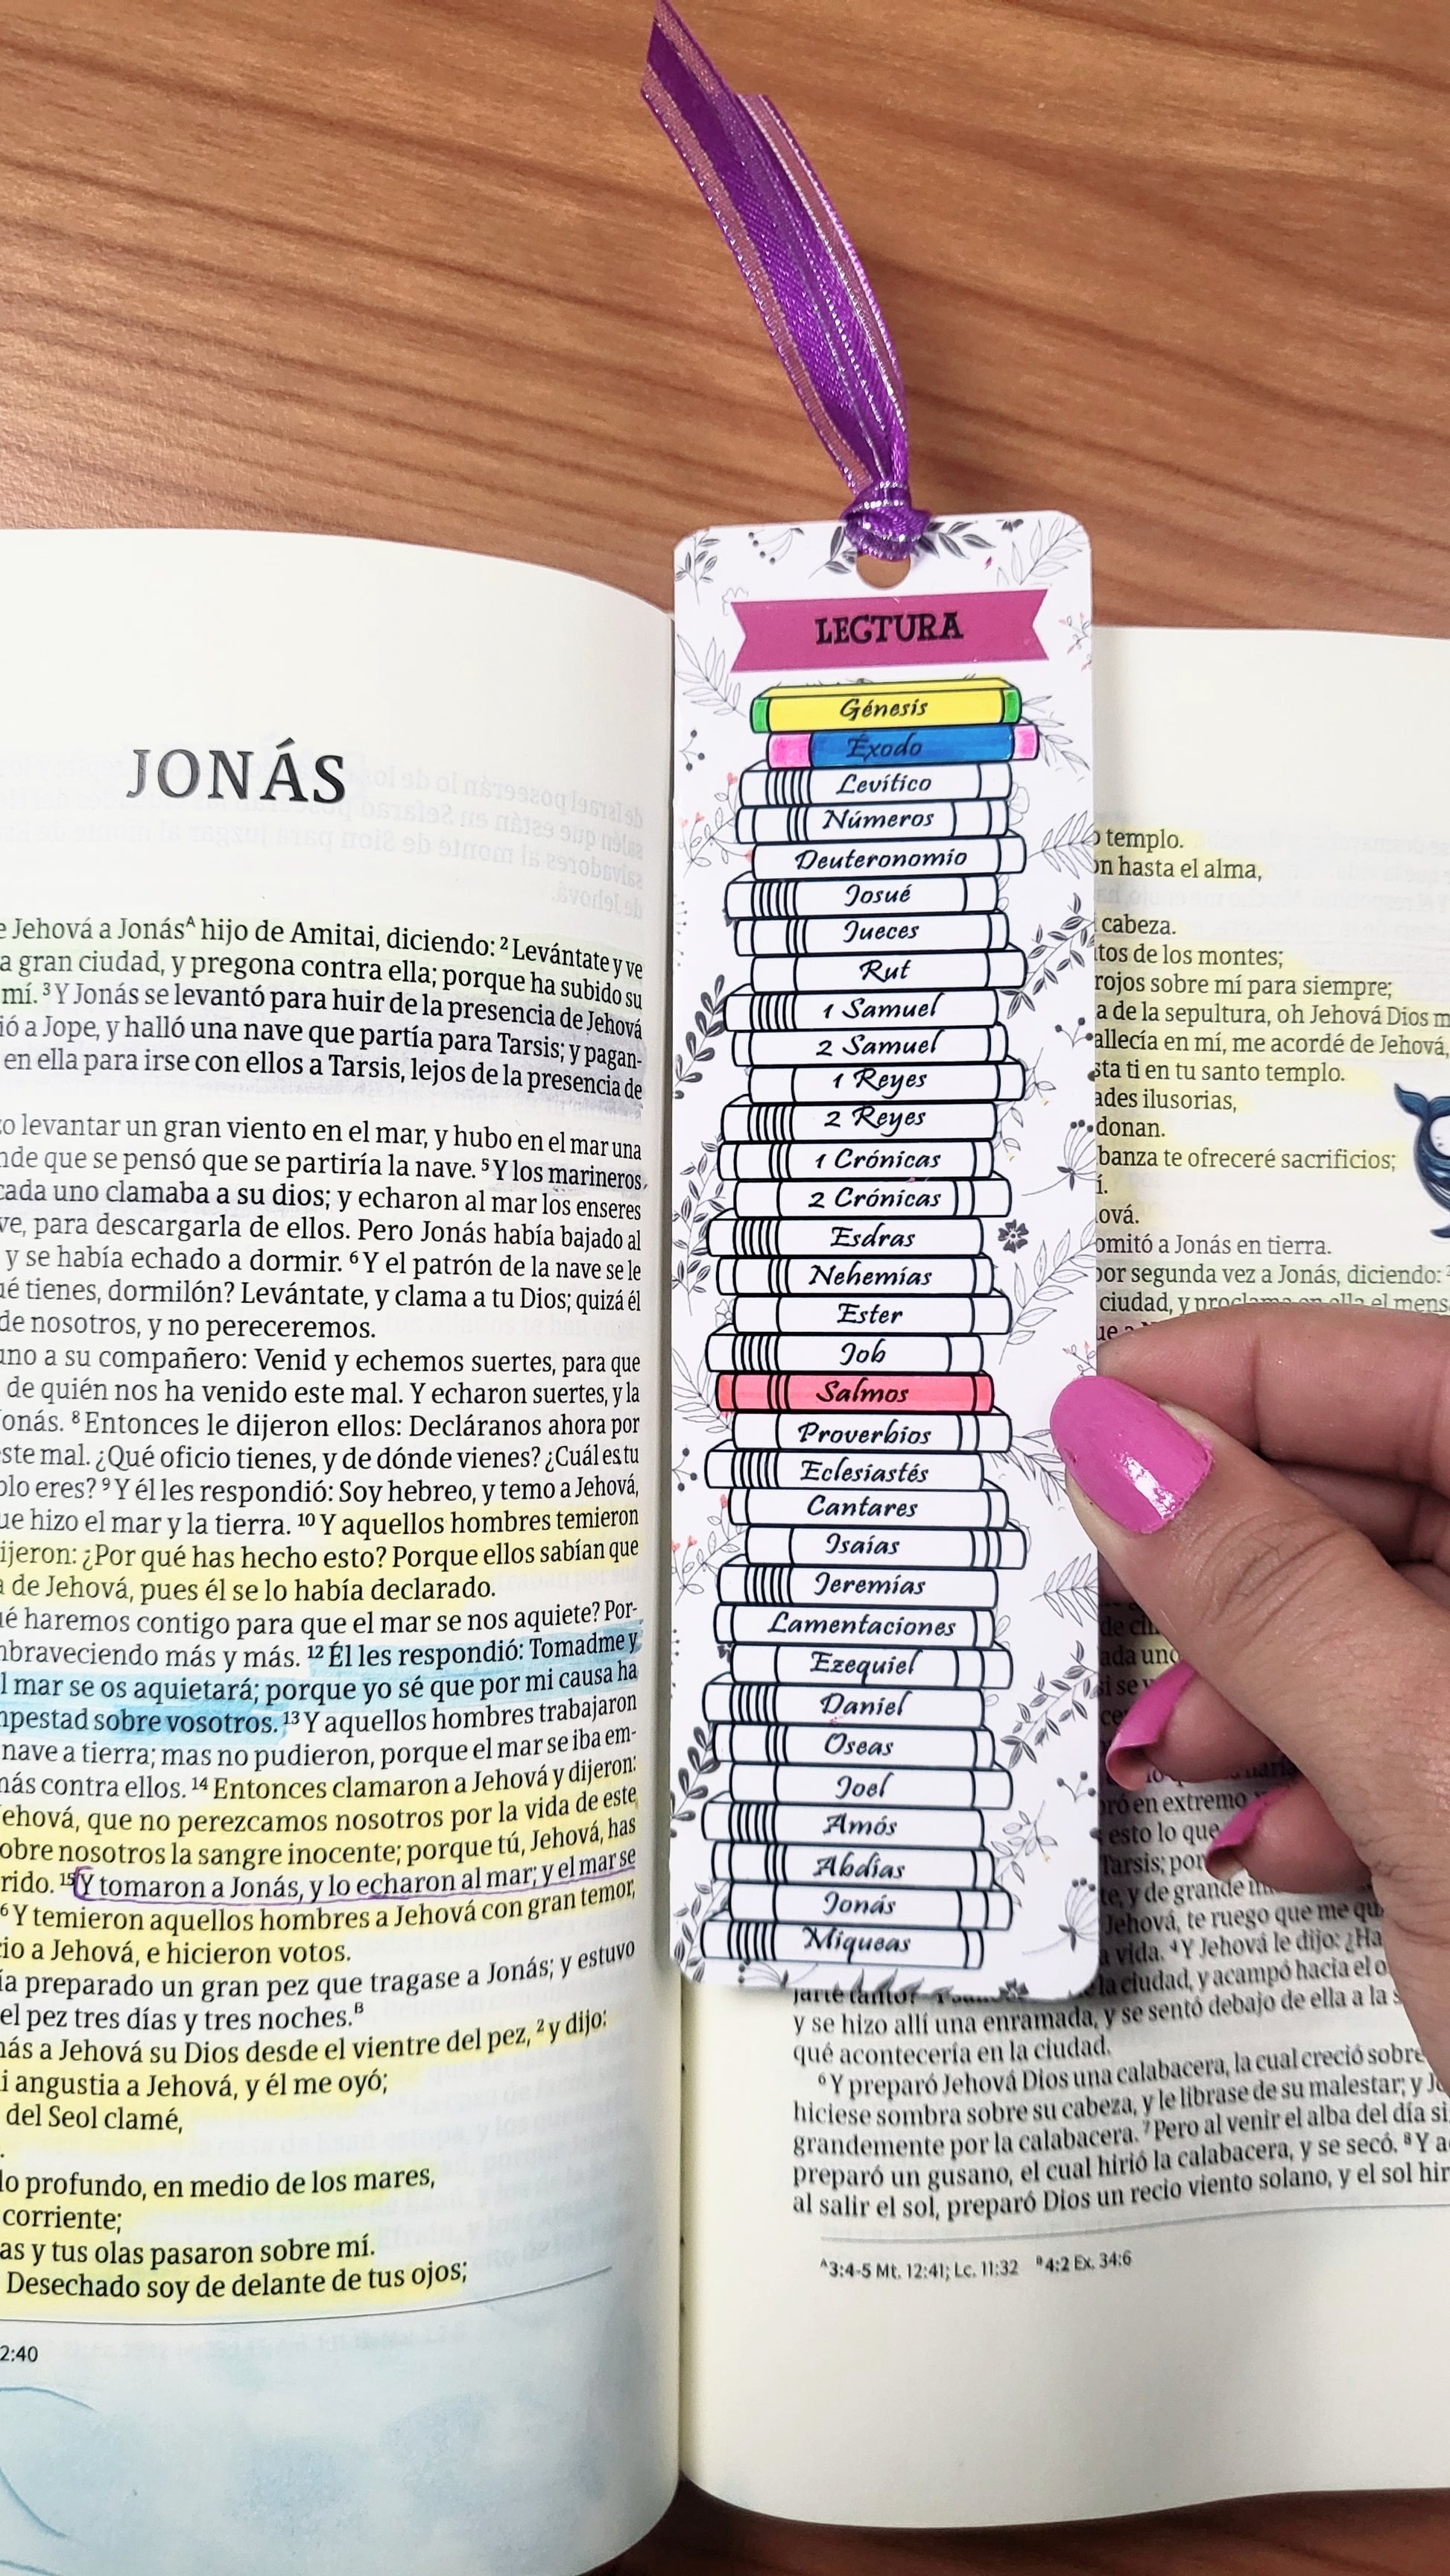 LECTURA
Génesis
Éxodo
Levítico
Números
Deuteronomio
Josué
Jueces
Rut
1 Samuel
2 Samuel
1 Reyes
2 Reyes
1 Crónicas
2 Crónicas
Esdras
Nehemías
Ester
Job
Salmos
Proverbios
Eclesiastés
Cantares
Isaías
Jeremías
Lamentaciones
Ezequiel
Daniel
Oseas
Joel
Amós
Abdías
Jonás
Miqueas
JONÁS
Jehová a Jonásᴬ hijo de Amitai, diciendo: ² Levántate y ve
a gran ciudad, y pregona contra ella; porque ha subido su
mí. ³ Y Jonás se levantó para huir de la presencia de Jehová
ió a Jope, y halló una nave que partía para Tarsis; y pagan-
en ella para irse con ellos a Tarsis, lejos de la presencia de
o levantar un gran viento en el mar, y hubo en el mar una
nde que se pensó que se partiría la nave. ⁵ Y los marineros
cada uno clamaba a su dios; y echaron al mar los enseres
ve, para descargarla de ellos. Pero Jonás había bajado al
y se había echado a dormir. ⁶ Y el patrón de la nave se le
ué tienes, dormilón? Levántate, y clama a tu Dios; quizá él
de nosotros, y no pereceremos.
uno a su compañero: Venid y echemos suertes, para que
de quién nos ha venido este mal. Y echaron suertes, y la
onás. ⁸ Entonces le dijeron ellos: Decláranos ahora por
ste mal. ¿Qué oficio tienes, y de dónde vienes? ¿Cuál es tu
blo eres? ⁹ Y él les respondió: Soy hebreo, y temo a Jehová,
ue hizo el mar y la tierra. ¹⁰ Y aquellos hombres temieron
ijeron: ¿Por qué has hecho esto? Porque ellos sabían que
a de Jehová, pues él se lo había declarado.
ué haremos contigo para que el mar se nos aquiete? Por-
mbraveciendo más y más. ¹² Él les respondió: Tomadme y
l mar se os aquietará; porque yo sé que por mi causa ha
mpestad sobre vosotros. ¹³ Y aquellos hombres trabajaron
nave a tierra; mas no pudieron, porque el mar se iba em-
más contra ellos. ¹⁴ Entonces clamaron a Jehová y dijeron:
Jehová, que no perezcamos nosotros por la vida de este
obre nosotros la sangre inocente; porque tú, Jehová, has
rido. ¹⁵ Y tomaron a Jonás, y lo echaron al mar; y el mar se
⁶ Y temieron aquellos hombres a Jehová con gran temor,
cio a Jehová, e hicieron votos.
ía preparado un gran pez que tragase a Jonás; y estuvo
el pez tres días y tres noches.ᴮ
nás a Jehová su Dios desde el vientre del pez, ² y dijo:
i angustia a Jehová, y él me oyó;
del Seol clamé,
lo profundo, en medio de los mares,
corriente;
as y tus olas pasaron sobre mí.
Desechado soy de delante de tus ojos;
2:40
o templo.
on hasta el alma,
cabeza.
tos de los montes;
rojos sobre mí para siempre;
a de la sepultura, oh Jehová Dios m
allecía en mí, me acordé de Jehová,
sta ti en tu santo templo.
ades ilusorias,
donan.
banza te ofreceré sacrificios;
í.
ová.
omitó a Jonás en tierra.
por segunda vez a Jonás, diciendo: ²
ciudad, y proclama en ella el mens
ada uno
si se
ró en extremo
esto lo que
Tarsis; por
te, y de grande
Jehová, te ruego que me qu
a vida. ⁴ Y Jehová le dijo: ¿Ha
la ciudad, y acampó hacia el o
y se hizo allí una enramada, y se sentó debajo de ella a la s
qué acontecería en la ciudad.
⁶ Y preparó Jehová Dios una calabacera, la cual creció sobre
hiciese sombra sobre su cabeza, y le librase de su malestar; y J
grandemente por la calabacera. ⁷ Pero al venir el alba del día si
preparó un gusano, el cual hirió la calabacera, y se secó. ⁸ Y a
al salir el sol, preparó Dios un recio viento solano, y el sol hir
ᴬ3:4-5 Mt. 12:41; Lc. 11:32 ᴮ4:2 Ex. 34:6